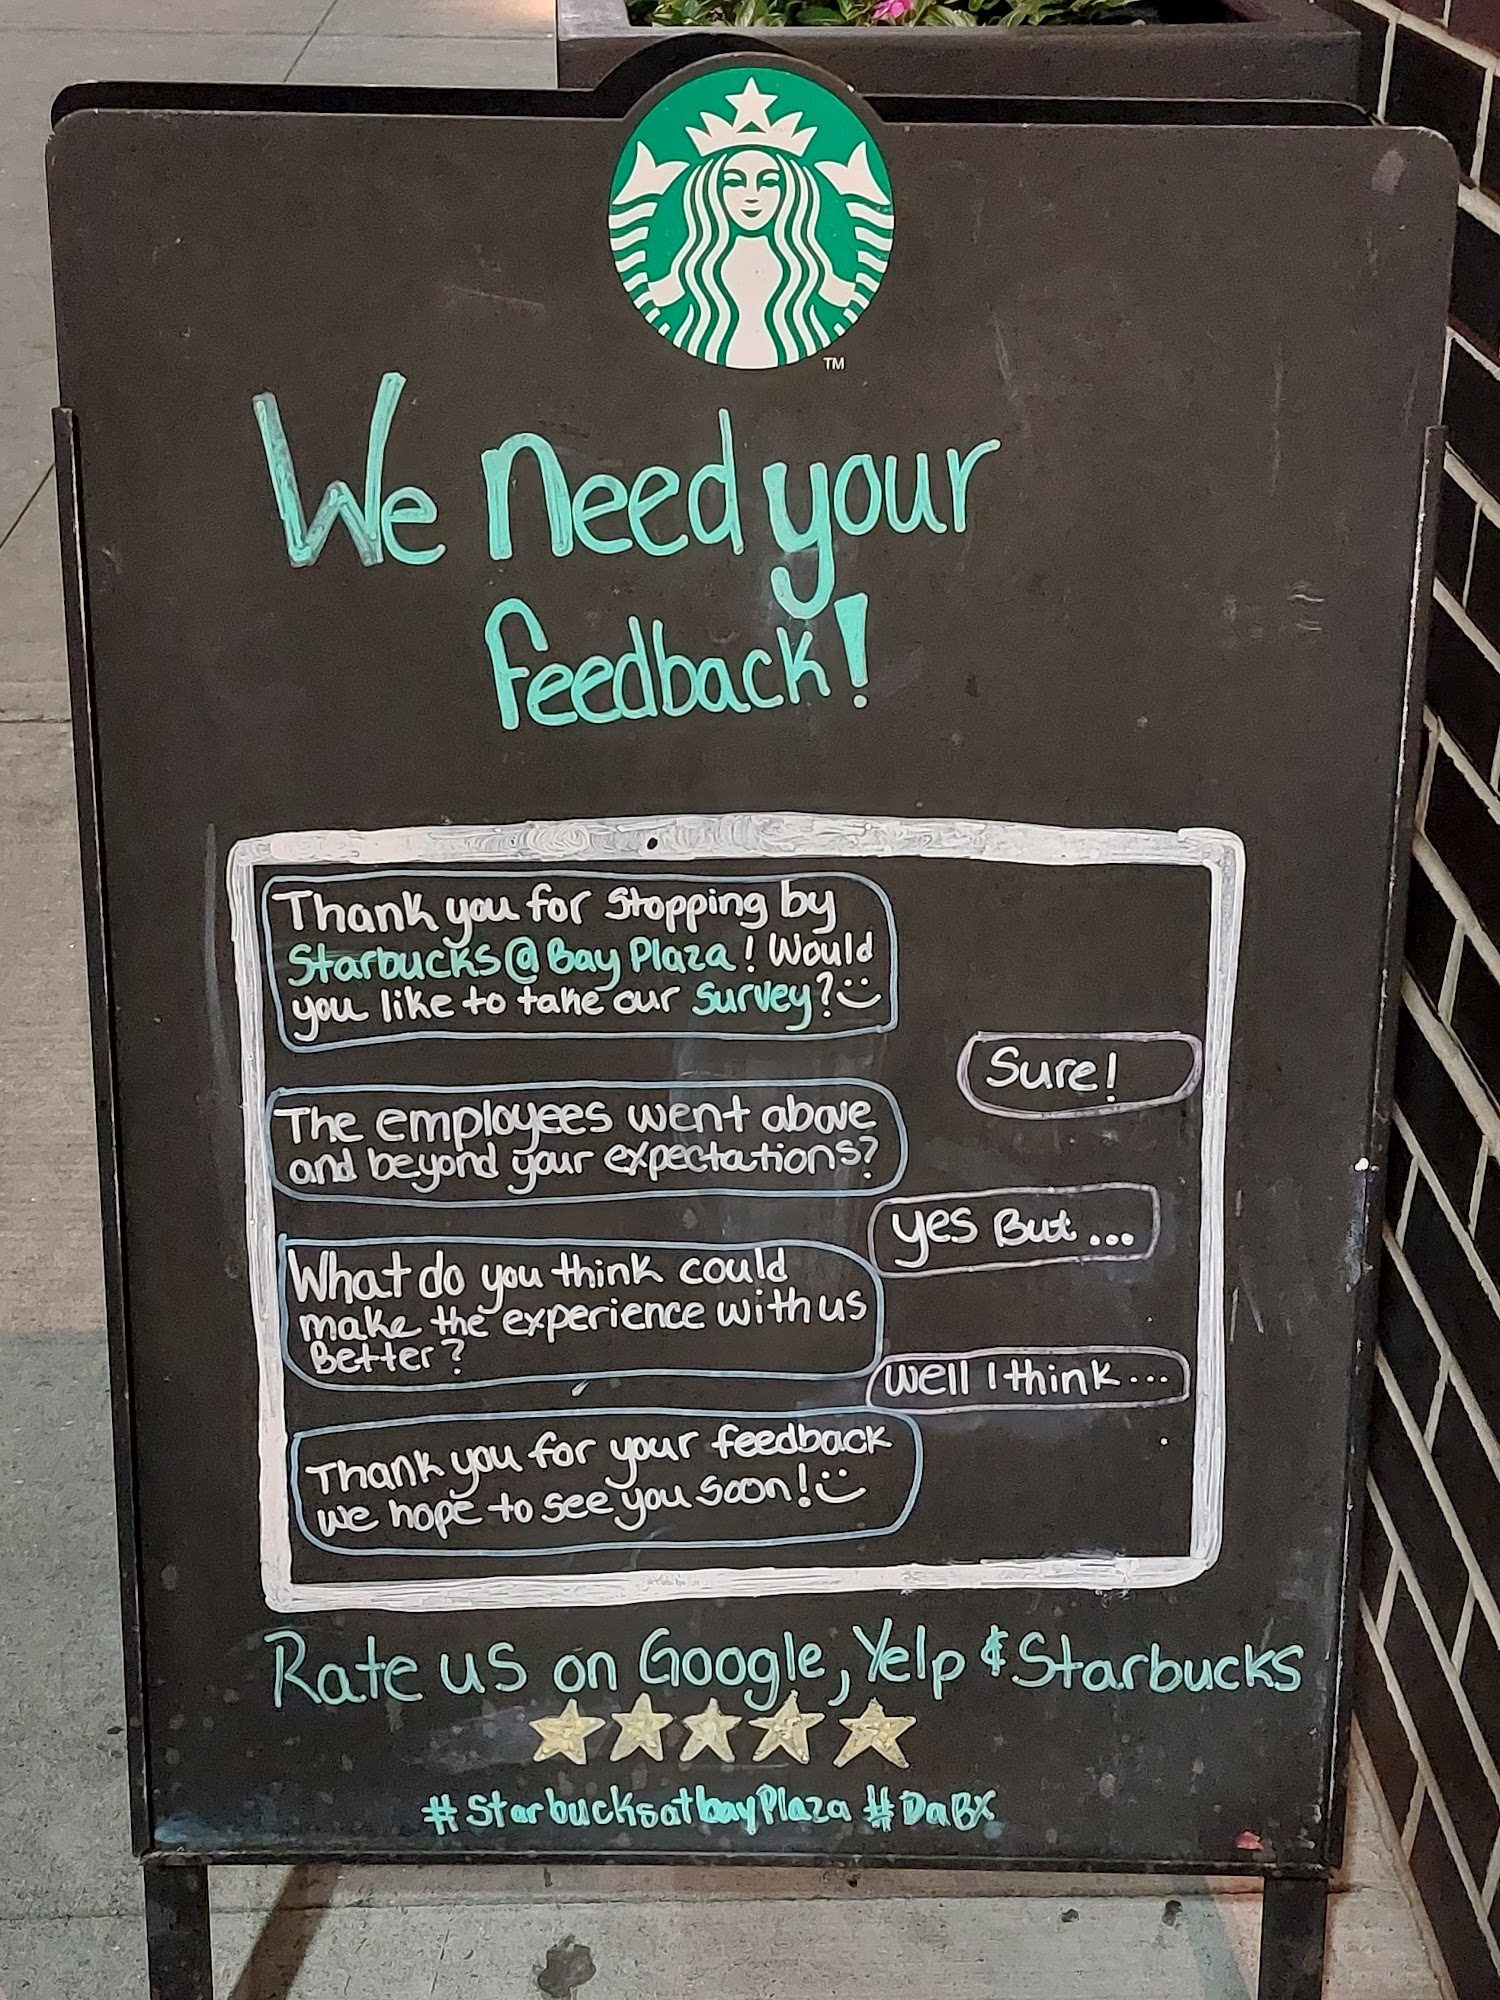 TM
We need your
feedback!
Thank you for stopping by
Starbucks @ Bay Plaza! Would
you like to take our survey? :)
Sure!
The employees went above
and beyond your expectations?
yes But...
What do you think could
make the experience with us
Better?
Well I think...
Thank you for your feedback
we hope to see you soon! :)
Rate us on Google, Yelp & Starbucks
#StarbucksatbayPlaza #DaBX